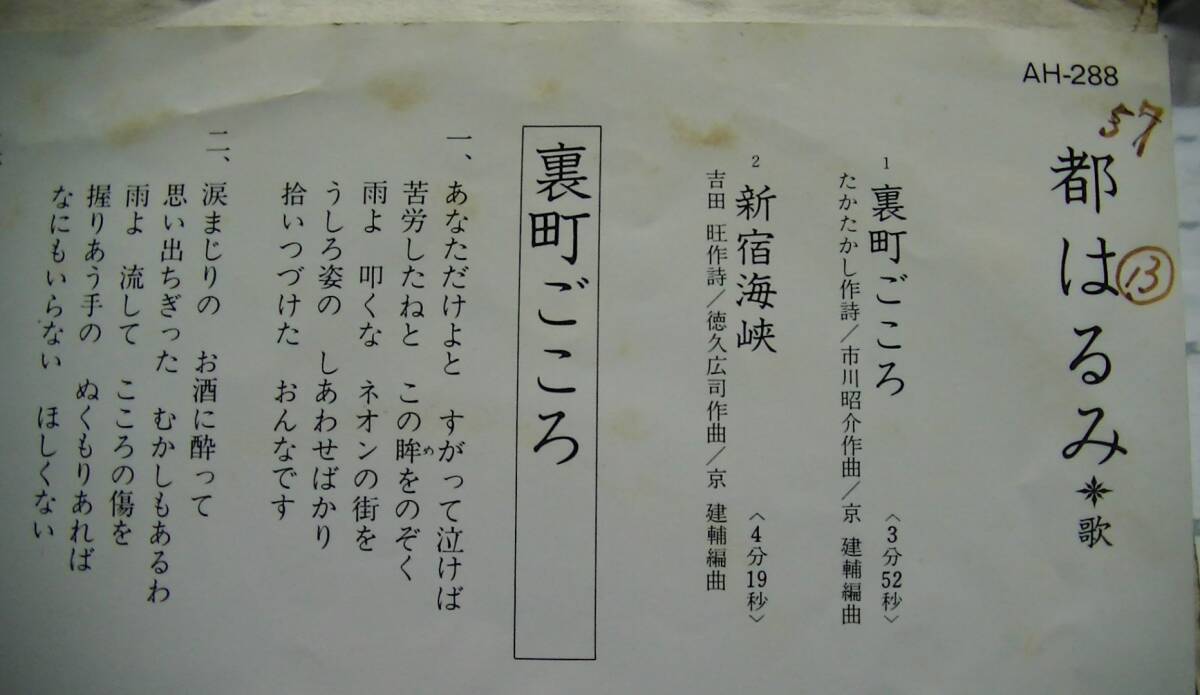 AH-288
57
都はるみ✴歌
13
1 裏町ごころ 〈3分52秒〉
たかたかし作詩/市川昭介作曲/京 建輔編曲
2 新宿海峡 〈4分19秒〉
吉田 旺作詩/徳久広司作曲/京 建輔編曲
裏町ごころ
一、あなただけよと すがって泣けば
苦労したねと この眸をのぞく
め
雨よ 叩くな ネオンの街を
うしろ姿の しあわせばかり
拾いつづけた おんなです
二、涙まじりの お酒に酔って
思い出ちぎった むかしもあるわ
雨よ 流して こころの傷を
握りあう手の ぬくもりあれば
なにもいらない ほしくない